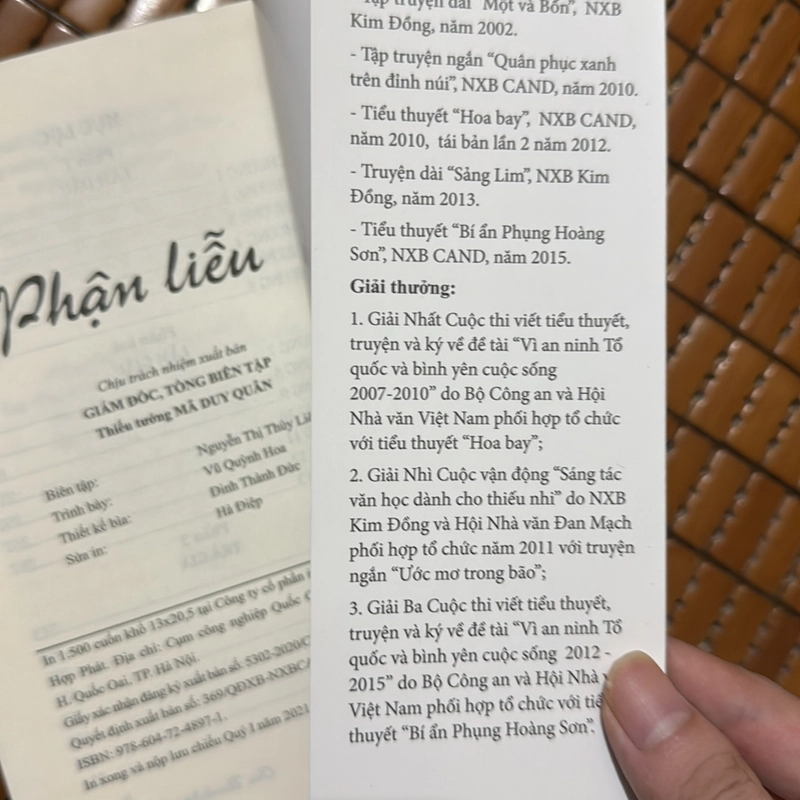 Phận liễu
Chịu trách nhiệm xuất bản
GIÁM ĐỐC, TỔNG BIÊN TẬP
Thiếu tướng MÃ DUY QUÂN
Biên tập: Nguyễn Thị Thùy
Trình bày: Vũ Quỳnh Hoa
Thiết kế bìa: Đinh Thành Đức
Sửa in: Hà Điệp
In 1.500 cuốn khổ 13x20,5 tại Công ty cổ phần
Hợp Phát. Địa chỉ: Cụm công nghiệp Quốc
H. Quốc Oai, TP. Hà Nội.
Giấy xác nhận đăng ký xuất bản số: 5302-2020/
Quyết định xuất bản số: 369/QĐXB-NXBCA
ISBN: 978-604-72-4897-1.
In xong và nộp lưu chiểu Quý I năm 2021
- Tập truyện dài "Một và Bốn", NXB
Kim Đồng, năm 2002.
- Tập truyện ngắn "Quân phục xanh
trên đỉnh núi", NXB CAND, năm 2010.
- Tiểu thuyết "Hoa bay", NXB CAND,
năm 2010, tái bản lần 2 năm 2012.
- Truyện dài "Sảng Lim", NXB Kim
Đồng, năm 2013.
- Tiểu thuyết "Bí ẩn Phụng Hoàng
Sơn", NXB CAND, năm 2015.
Giải thưởng:
1. Giải Nhất Cuộc thi viết tiểu thuyết,
truyện và ký về đề tài "Vì an ninh Tổ
quốc và bình yên cuộc sống
2007-2010" do Bộ Công an và Hội
Nhà văn Việt Nam phối hợp tổ chức
với tiểu thuyết "Hoa bay";
2. Giải Nhì Cuộc vận động "Sáng tác
văn học dành cho thiếu nhi" do NXB
Kim Đồng và Hội Nhà văn Đan Mạch
phối hợp tổ chức năm 2011 với truyện
ngắn "Ước mơ trong bão";
3. Giải Ba Cuộc thi viết tiểu thuyết,
truyện và ký về đề tài "Vì an ninh Tổ
quốc và bình yên cuộc sống 2012 -
2015" do Bộ Công an và Hội Nhà
Việt Nam phối hợp tổ chức với
thuyết "Bí ẩn Phụng Hoàng Sơn".